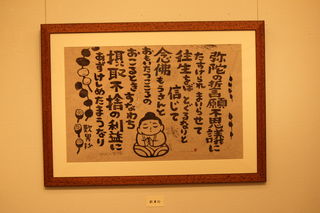 弥陀の誓願不思議に
たすけられまいらせて
往生をばとぐるなりと
信じて
念佛もうさんと
おもいたつこころの
おこるときすなわち
摂取不捨の利益に
あずけしめたまうなり
歎異抄